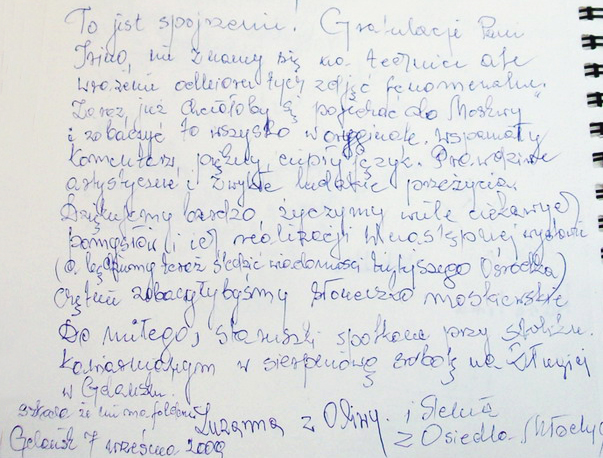 To jest spojrzenie! Gratulacje Pani
Irino, nie znamy się na technice ale
wrażenie odbioru tych zdjęć fenomenalne.
Zaraz już chciałoby się pojechać do Moskwy
i zobaczyć to wszystko w oryginale, wspaniały
komentarz, piękny, ciepły język. Prawdziwe
artystyczne i zwykłe ludzkie przeżycia.
Dziękujemy bardzo, życzymy wiele ciekawych
pomysłów i ich realizacji w następnej wystawie
(a będziemy teraz śledzić wiadomości tutejszego Ośrodka)
Chętnie zobaczyłybyśmy słoneczko moskiewskie
Do miłego, staruszki spotkane przy stoliku
kawiarnianym w sierpniową sobotę na Długiej
w Gdańsku.
szkoda że nie ma folderu
Zuzanna z Oliwy. i
Gdańsk 7 września 2009
z Osiedla